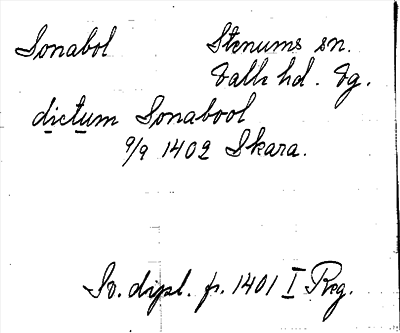 Sonabol Stenums sn.
Valle hd. Vg.
dictum Sonabool
9/9 1402 Skara.
Sv. dipl. fr. 1401 I Reg.